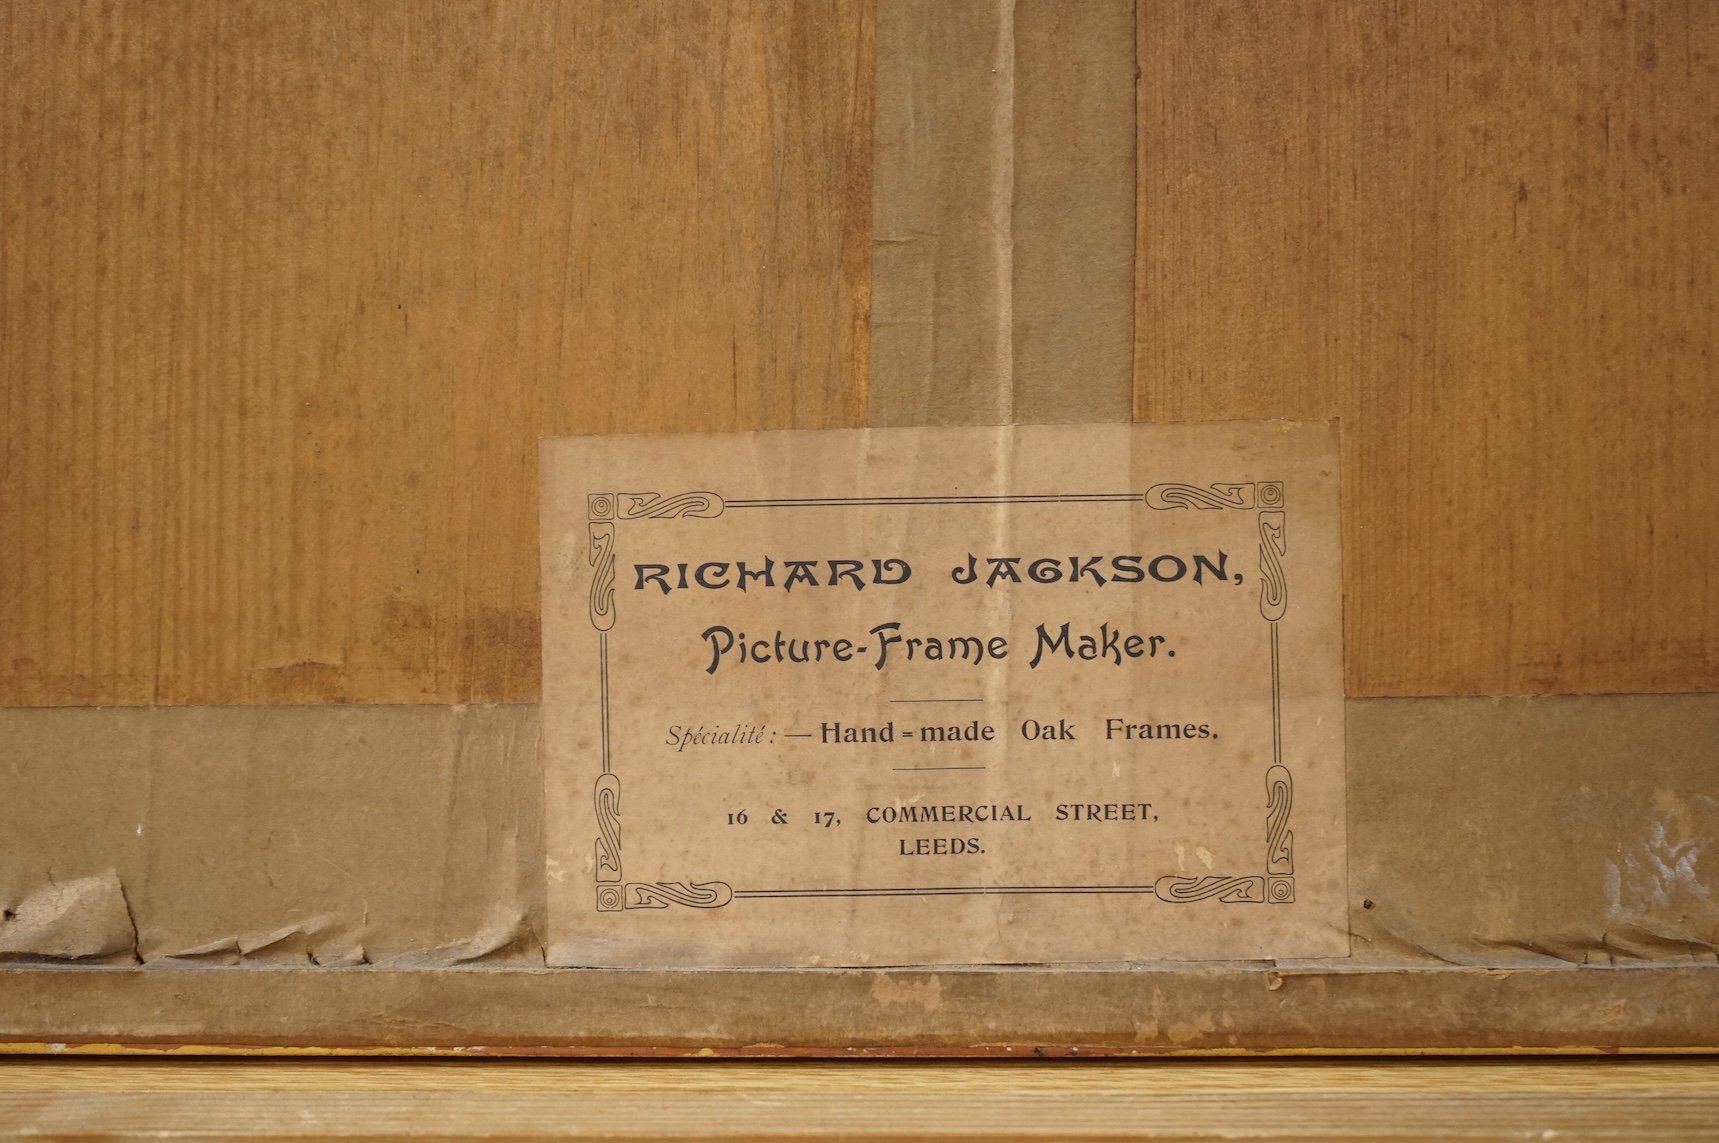 RICHARD JACKSON,
Picture-Frame Maker.
Spécialité: — Hand=made Oak Frames.
16 & 17, COMMERCIAL STREET,
LEEDS.